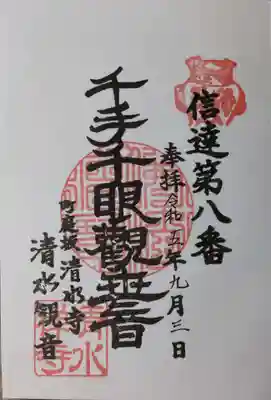 信達第八番
奉拝 令和五年九月三日
千手千眼觀世音
清水寺
清水観音